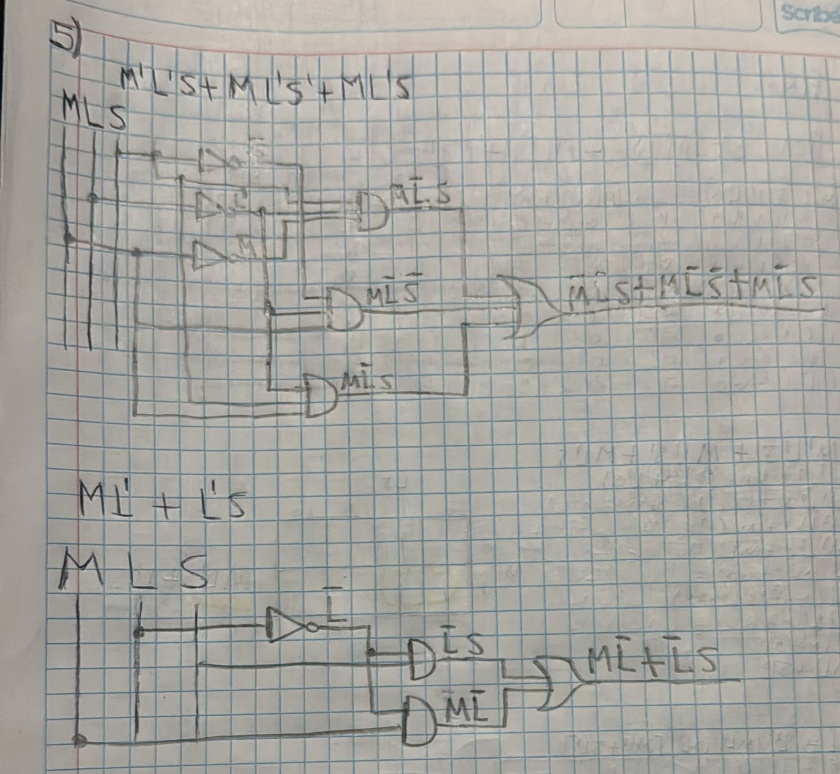 Scribe
5)
M'L'S + ML'S' + ML'S
M L S
S̅
L̅
M̅
M̅L̅S
ML̅S̅
ML̅S
M̅L̅S + ML̅S̅ + ML̅S
ML' + L'S
M L S
L̅
L̅S
ML̅
ML̅ + L̅S